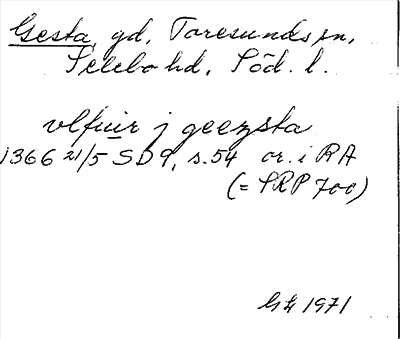 Gesta, gd, Toresunds sn,
Selebo hd, Söd. l.
vlfuir j geezsta
1366 21/5 SD 9, s. 54 or. i RA
(= SRP 700)
1971